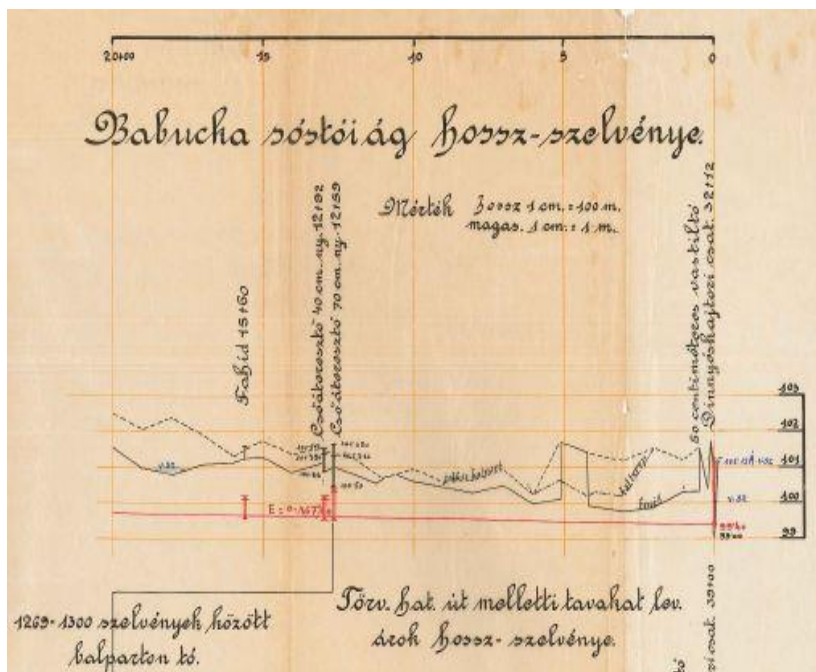 20+09 15 10 5 0
Babucha sóstói ág hossz-szelvénye.
Mérték Hossz 1 cm. = 100 m.
magas. 1 cm. = 1 m.
Fahíd 15+60
Csőáteresztő 40 cm. ny. 12+92
Csőáteresztő 70 cm. ny. 12+69
60 centiméteres vastiltó
Dinnyéskajtori csat. 32+12
103
102
101
100
99
E = 0.167
fenék
99.40
99.00
1269-1300 szelvények között
balparton tó.
Törv. hat. út melletti tavakat lev.
árok hossz-szelvénye.